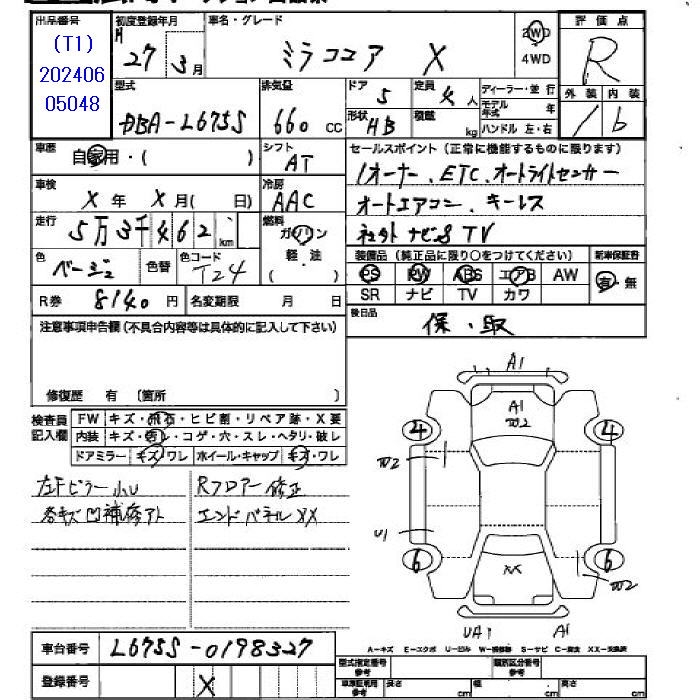 出品番号
(T1)
202406
05048
初度登録年月
H
27年3月
車名・グレード
ミラココア X
2WD
4WD
評価点
R
外装 内装
1 b
型式
DBA-L675S
排気量
660 CC
ドア
5
定員
4人
形状
HB
積載
kg
ディーラー・並行
モデル年式 年
ハンドル 左・右
車歴
自家用・( )
シフト
AT
車検
X年 X月( 日)
冷房
AAC
走行
5万3千462 km
燃料
ガソリン
軽・油
( )
色
ベージュ
色替
色コード
T24
R券 8140 円
名変期限 月 日
セールスポイント(正常に機能するものに限ります)
1オーナー、ETC、オートライトセンサー
オートエアコン、キーレス
社外ナビ&TV
装備品(純正品に限り○をつけてください)
新車保証書
PS PW ABS エアB AW
SR ナビ TV カワ
有・無
後日品
保・取
注意事項申告欄(不具合内容等は具体的に記入して下さい)
修復歴 有 〔箇所 〕
検査員記入欄
FW キズ・飛石・ヒビ割・リペア跡・X要
内装 キズ・汚レ・コゲ・穴・スレ・ヘタリ・破レ
ドアミラー キズ・ワレ ホイール・キャップ キズ・ワレ
左Fピラー小U
各キズ凹補修アト
Rフロアー修正
エンドパネルXX
A1
A1
W2
4
4
W2
U1
6
6
W2
XX
UA1
A1
A-キズ E-エクボ U-凹み W-補修跡 S-サビ C-腐食 XX-交換済
車台番号 L675S-0198327
登録番号 X
型式指定番号
参考
類別区分番号
参考
車庫証明用
参考
長さ cm
幅 cm
高さ cm